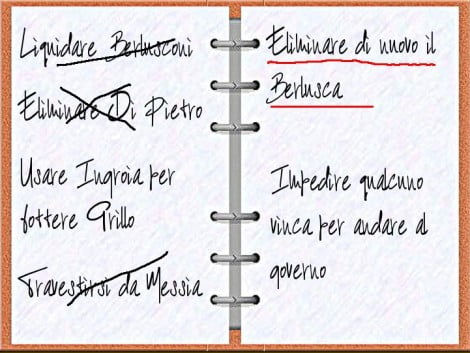 Liquidare Berlusconi
Eliminare Di Pietro
Usare Ingroia per
fottere Grillo
Travestirsi da Messia
Eliminare di nuovo il
Berlusca
Impedire qualcuno
vinca per andare al
governo